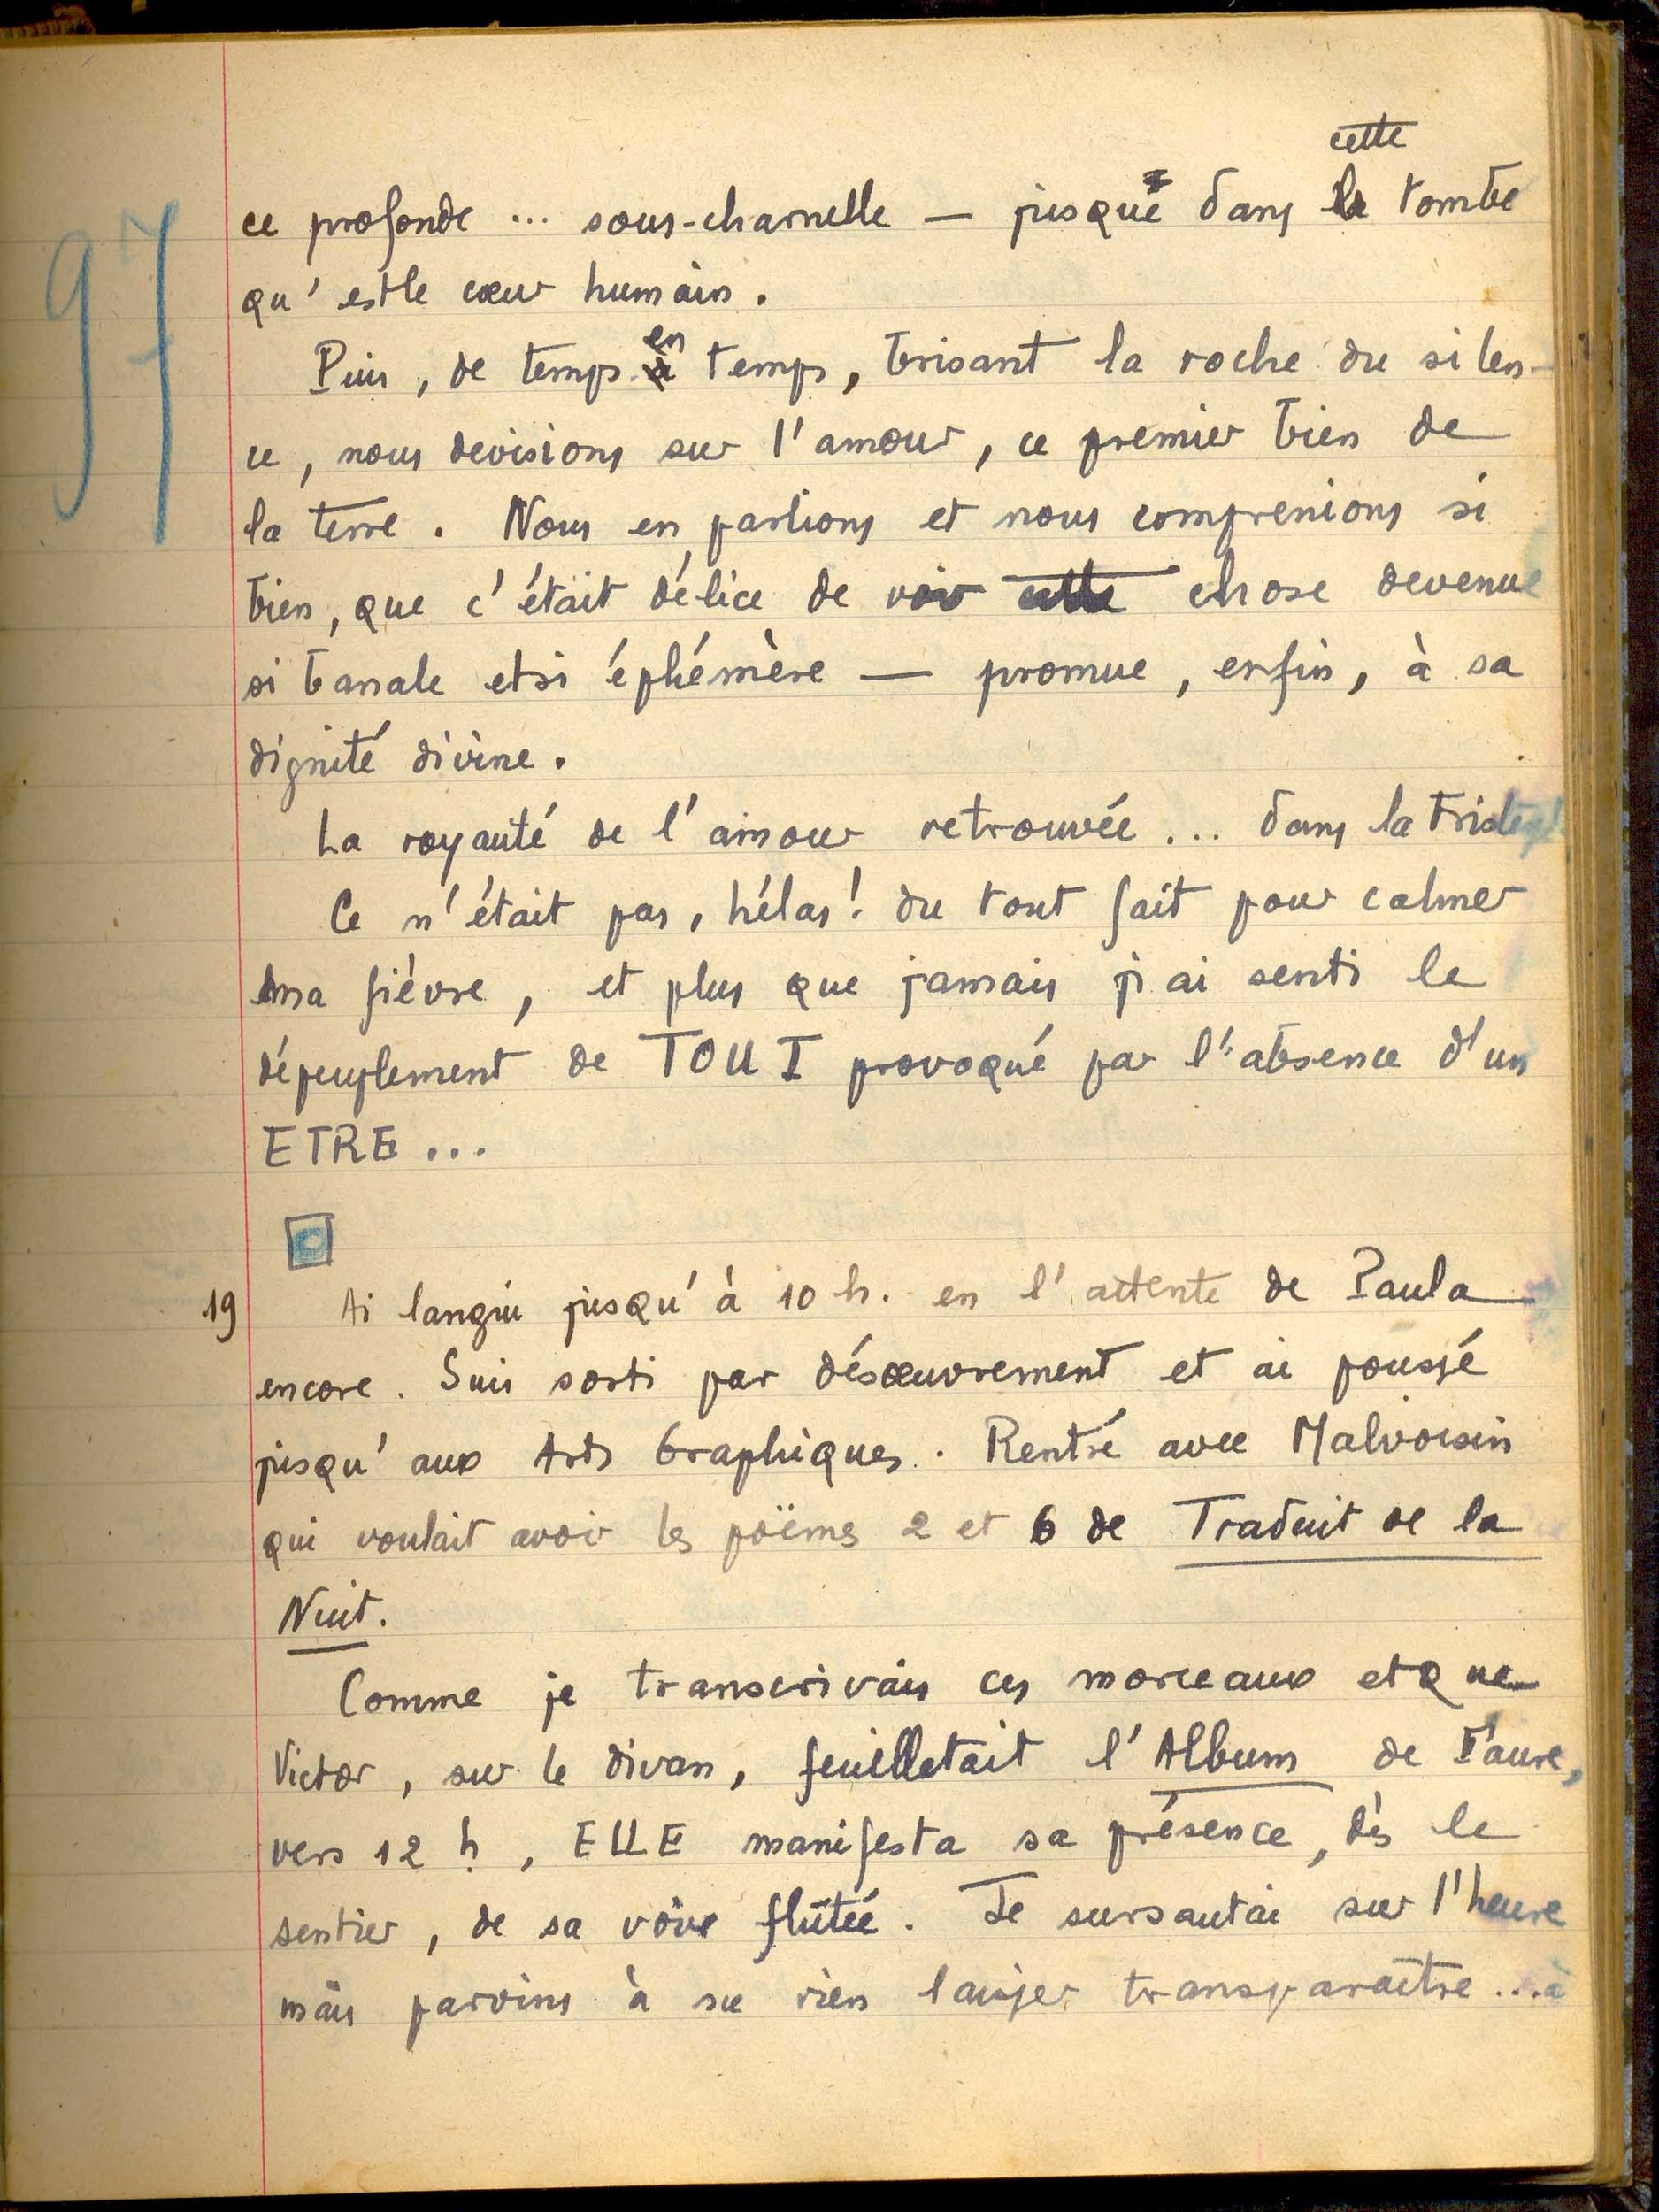 97
ce profonde ... sous-charnelle — jusque dans cette tombe
qu'est le cœur humain.
Puis, de temps en temps, brisant la roche du silen-
ce, nous devisions sur l'amour, ce premier bien de
la terre. Nous en parlions et nous comprenions si
bien, que c'était délice de voir cette chose devenue
si banale et si éphémère — promue, enfin, à sa
dignité divine.
La royauté de l'amour retrouvée... dans la
Ce n'était pas, hélas! du tout fait pour calmer
ma fièvre, et plus que jamais j'ai senti le
dépeuplement de TOUT provoqué par l'absence d'un
ETRE...
19 Ai langui jusqu'à 10 h. en l'attente de Paula
encore. Suis sorti par désœuvrement et ai poussé
jusqu'aux Arts Graphiques. Rentré avec Malvoisin
qui voulait avoir les poëmes 2 et 6 de Traduit de la
Nuit.
Comme je transcrivais ces morceaux et que
Victor, sur le divan, feuilletait l'Album de Faure,
vers 12 h, ELLE manifesta sa présence, dès le
sentier, de sa voix flûtée. Je sursautai sur l'heure
mais parvins à ne rien laisser transparaître... à